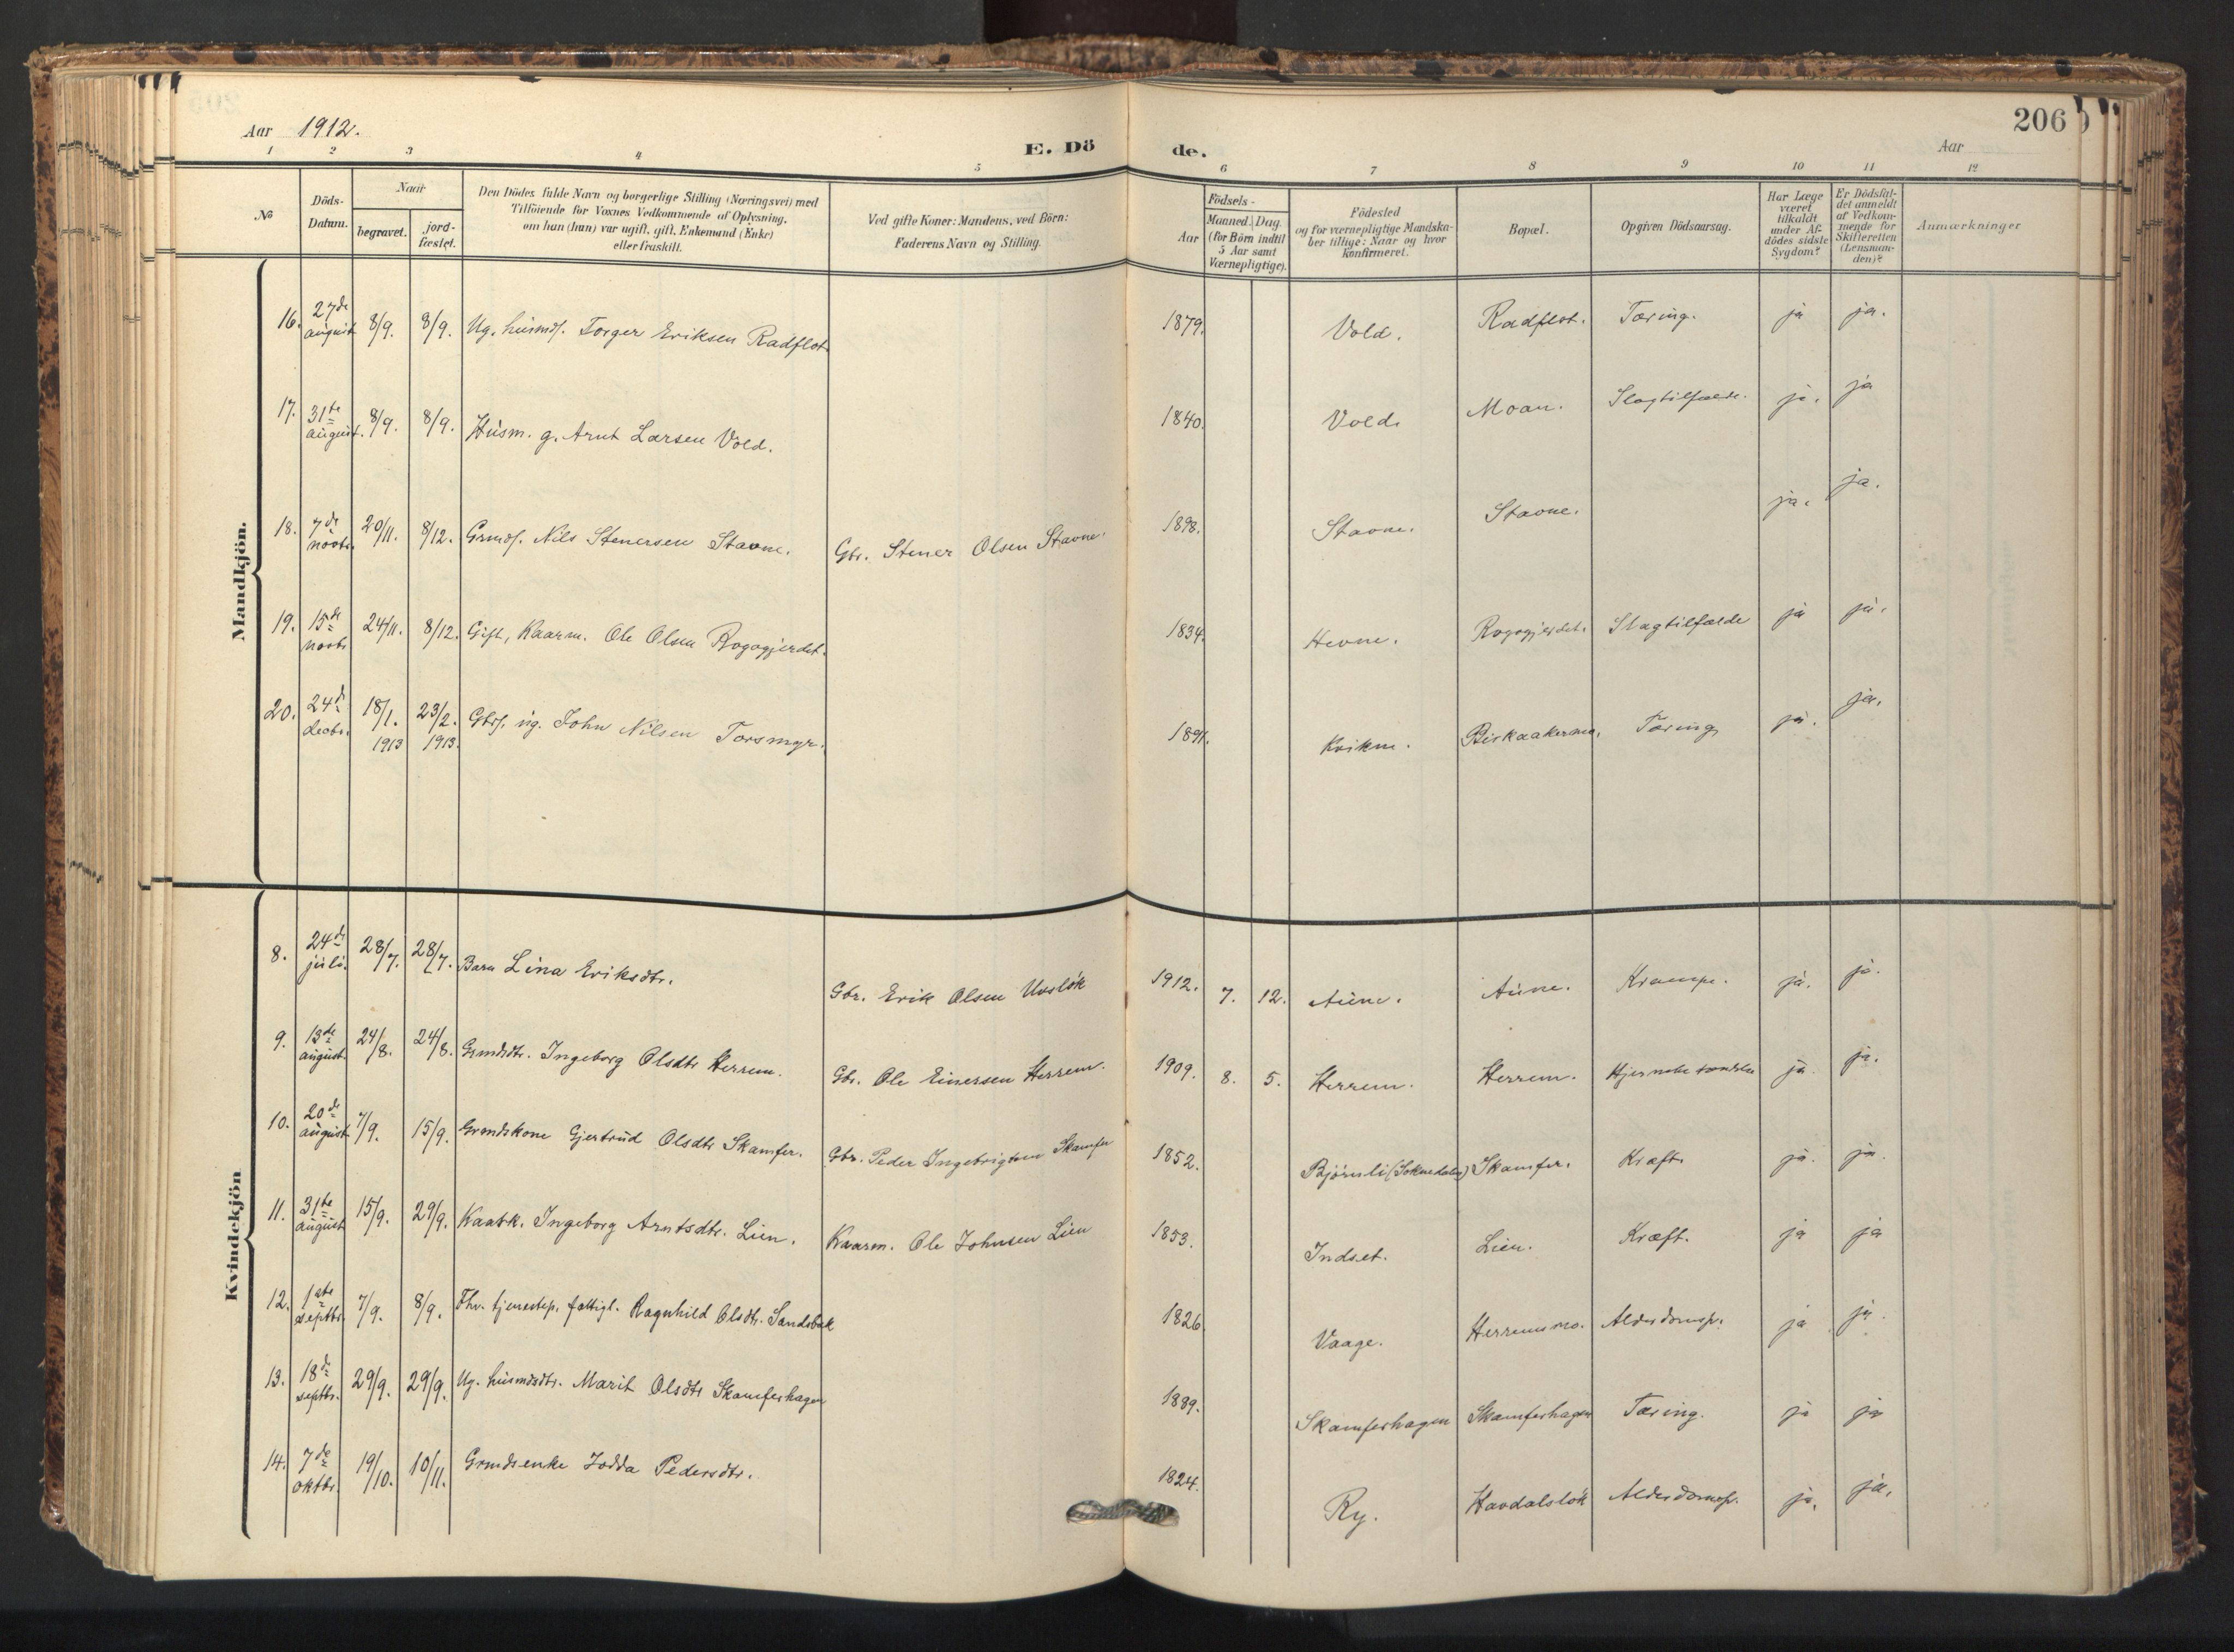 206
Aar 1912.
E. Dö de.
Aar
1 2 3 4 5 6 7 8 9 10 11 12
No
Döds-
Datum.
Naar
begravet.
jord-
fæstet.
Den Dödes fulde Navn og borgerlige Stilling (Næringsvei) med
Tilföiende for Voxnes Vedkommende af Oplysning,
om han (hun) var ugift, gift, Enkemand (Enke)
eller fraskilt.
Ved gifte Koner: Mandens, ved Börn:
Faderens Navn og Stilling.
Födsels-
Aar
Maaned. Dag.
(for Börn indtil
5 Aar samt
Værnepligtige).
Födested
og for værnepligtige Mandska-
ber tillige: Naar og hvor
konfirmeret.
Bopæl.
Opgiven Dödsaarsag.
Har Læge
været
tilkaldt
under Af-
dödes sidste
Sygdom?
Er Dödsfal-
det anmeldt
af Vedkom-
mende for
Skifteretten
(Lensman-
den)?
Anmærkninger
Mandkjön.
16. 27de august 8/9. 8/9. Ug. husmds. Torger Eriksen Radflot 1879. Vold. Radflot. Tæring. ja ja.
17. 31te august. 8/9. 8/9. Husm. g. Arnt Larsen Vold. 1840. Vold. Moan. Slagtilfælde. ja. ja
18. 7de novbr. 20/11. 8/12. Grmds. Nils Stenersen Stavne. Gbr. Stener Olsen Stavne. 1898. Stavne. Stavne. ja. ja.
19. 15de novbr. 24/11. 8/12. Gift, Kaarm. Ole Olsen Rogogjerdet. 1834. Hevne. Rogogjerdet. Slagtilfælde ja ja.
20. 24de decbr. 18/1. 1913 23/2. 1913. Gbrs. ug. John Nilsen Torsmyr. 1891. Kvikne. Birkaakermo. Tæring ja. ja.
Kvindekjön
8. 24de juli. 28/7. 28/7. Barn Lina Eriksdtr. Gbr. Erik Olsen Uvsløk 1912. 7. 12. Aune. Aune. Krampe. ja. ja.
9. 13de august. 24/8. 24/8. Grmdsdtr. Ingeborg Olsdtr Herrem. Gbr. Ole Einersen Herrem. 1909. 8. 5. Herrem. Herrem. ja. ja.
10. 20de august. 7/9. 15/9. Grmdskone Gjertrud Olsdtr Skamfer. Gbr. Peder Ingebrigtsen Skamfer 1852. Bjørnli (Soknedalen) Skamfer. Kræft. ja. ja.
11. 31te august 15/9. 29/9. Kaark. Ingeborg Arntsdtr. Lien. Kaarm. Ole Johnsen Lien 1853. Indset. Lien. Kræft. ja ja
12. 1ste septbr. 7/9. 8/9. Fhv. tjenestep. fattigl. Ragnhild Olsdtr. Sandsbak 1826. Vaage. Herremsmo. Alderdomssp. ja ja.
13. 18de septbr. 29/9. 29/9. Ug. husmdsdtr. Marit Olsdtr Skamferhagen 1889. Skamferhagen Skamferhagen Tæring. ja ja
14. 7de oktbr. 19/10. 10/11. Grmdsenke Jodda Pedersdtr. 1824. Ry. Havdalsløk Alderdomssp. ja. ja.